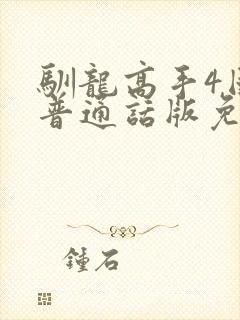 馴龍高手4
普通話版免
鍾石